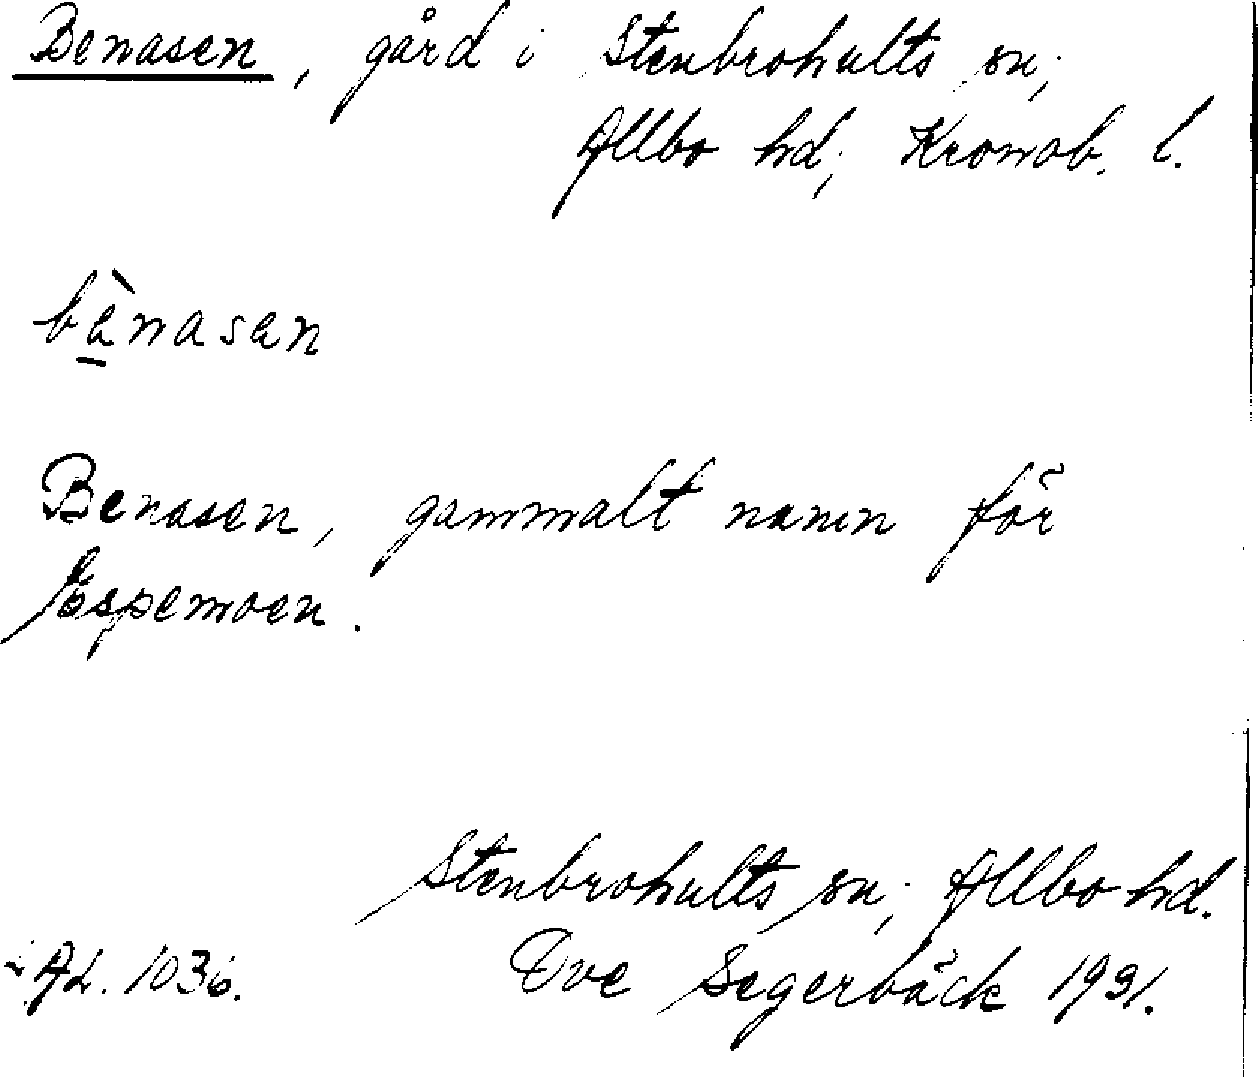 Benasen, gård i Stenbrohults sn;
Allbo hd; Kronob. l.
bè̱nasen
Benasen, gammalt namn för
Espemoen.
Stenbrohults sn; Allbo hd.
AL. 1036.
Ove Segerbäck 1931.